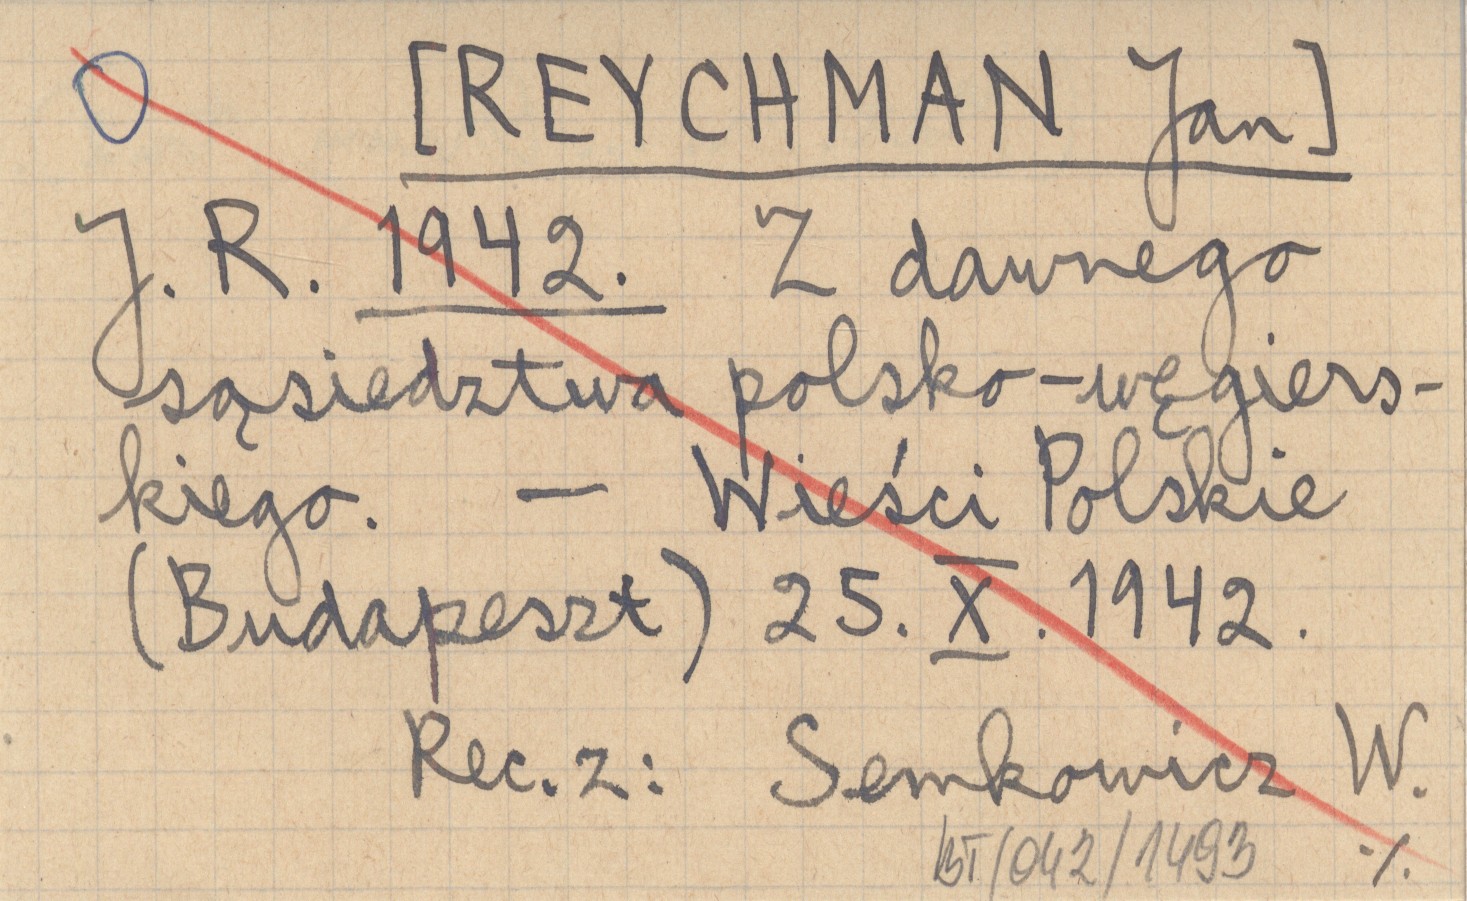 [REYCHMAN Jan]
J. R. 1942. Z dawnego
sąsiedztwa polsko-węgiers-
kiego. — Wieści Polskie
(Budapeszt) 25. X. 1942.
Rec. z: Semkowicz W.
BT/042/1493 ·/.